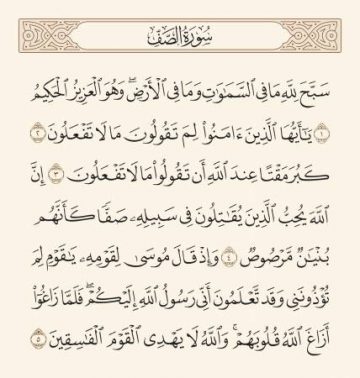 سُورَةُ الصَّفِّ
سَبَّحَ لِلَّهِ مَا فِي السَّمَٰوَٰتِ وَمَا فِي الْأَرْضِۖ وَهُوَ الْعَزِيزُ الْحَكِيمُ
١ يَٰٓأَيُّهَا الَّذِينَ ءَامَنُوا۟ لِمَ تَقُولُونَ مَا لَا تَفْعَلُونَ ٢
كَبُرَ مَقْتًا عِندَ اللَّهِ أَن تَقُولُوا۟ مَا لَا تَفْعَلُونَ ٣ إِنَّ
اللَّهَ يُحِبُّ الَّذِينَ يُقَٰتِلُونَ فِي سَبِيلِهِۦ صَفًّا كَأَنَّهُم
بُنْيَٰنٌ مَّرْصُوصٌ ٤ وَإِذْ قَالَ مُوسَىٰ لِقَوْمِهِۦ يَٰقَوْمِ لِمَ
تُؤْذُونَنِي وَقَد تَّعْلَمُونَ أَنِّي رَسُولُ اللَّهِ إِلَيْكُمْۖ فَلَمَّا زَاغُوٓا۟
أَزَاغَ اللَّهُ قُلُوبَهُمْۚ وَاللَّهُ لَا يَهْدِي الْقَوْمَ الْفَٰسِقِينَ ٥